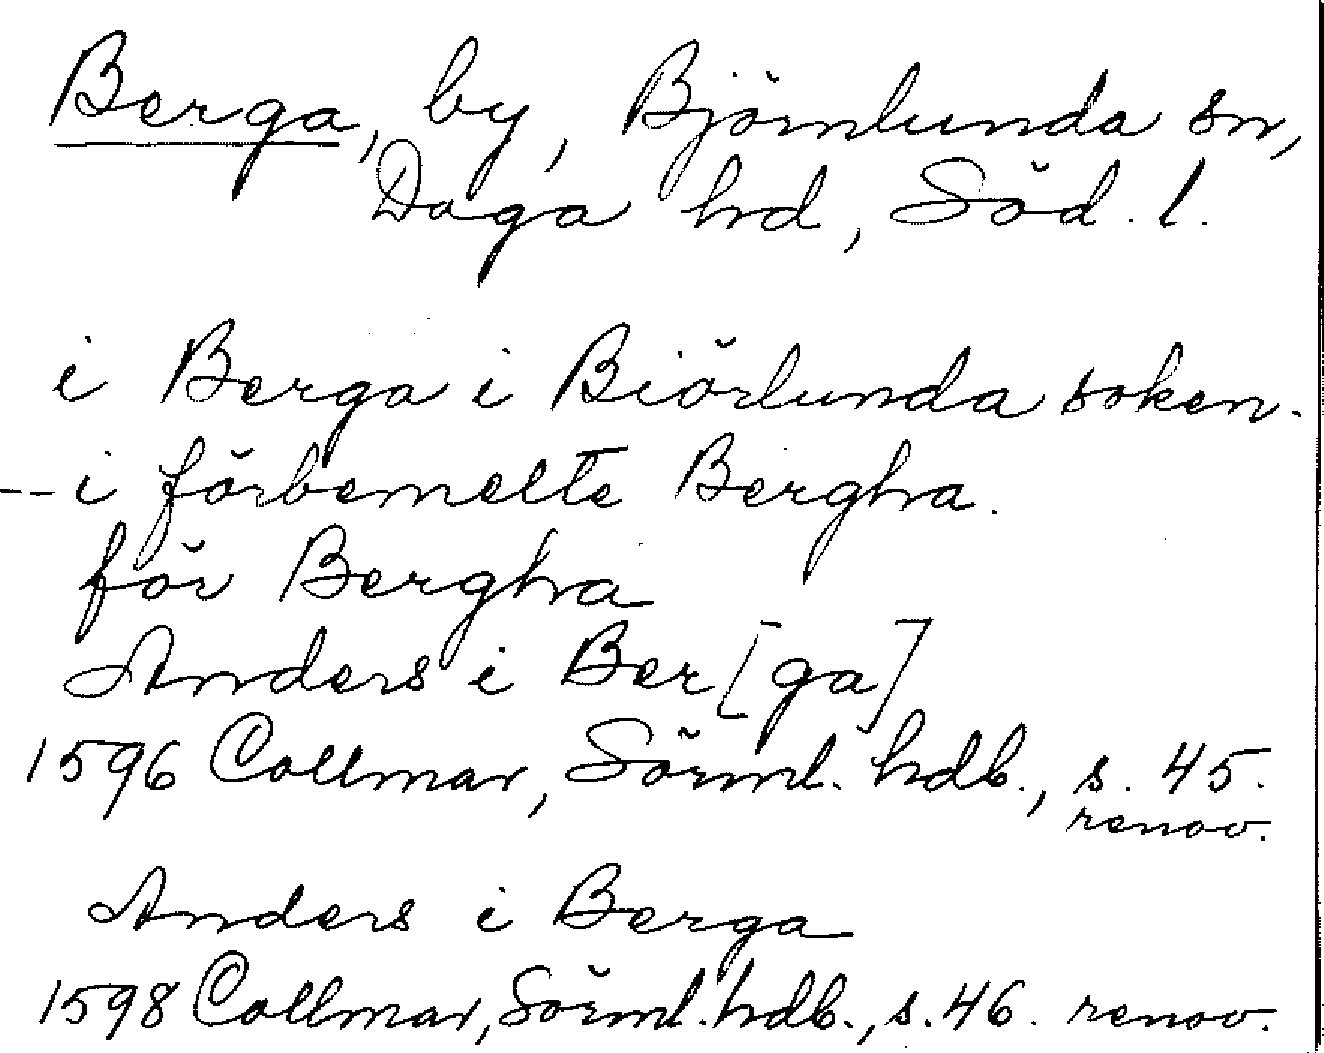 Berga, by, Björnlunda sn,
Daga hd, Söd. l.
i Berga i Biörlunda soken.
-- i förbemelte Bergha.
för Bergha
Anders i Ber[ga]
1596 Collmar, Sörml. hdb., s. 45.
renov.
Anders i Berga
1598 Collmar, Sörml. hdb., s. 46. renov.